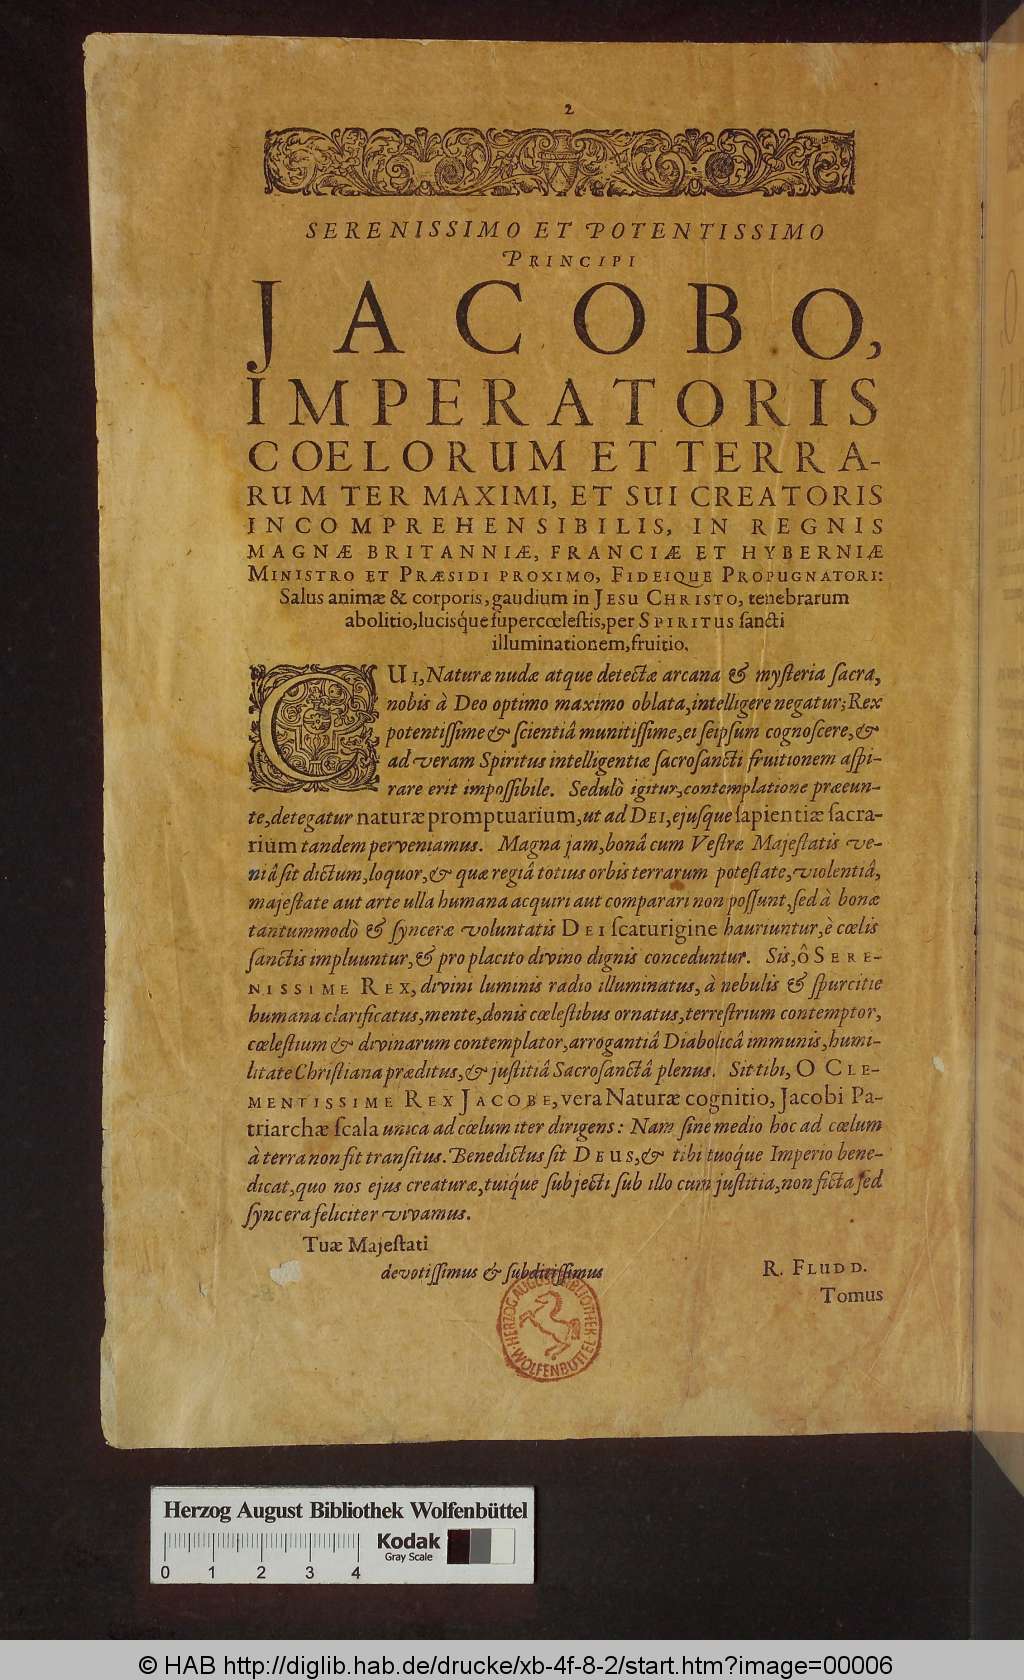 2
SERENISSIMO ET POTENTISSIMO
PRINCIPI
JACOBO,
IMPERATORIS
COELORUM ET TERRA-
RUM TER MAXIMI, ET SUI CREATORIS
INCOMPREHENSIBILIS, IN REGNIS
MAGNÆ BRITANNIÆ, FRANCIÆ ET HYBERNIÆ
MINISTRO ET PRÆSIDI PROXIMO, FIDEIQUE PROPUGNATORI:
Salus animæ & corporis, gaudium in JESU CHRISTO, tenebrarum
abolitio, lucisq́ue ſupercœleſtis, per SPIRITUS ſancti
illuminationem, fruitio.
CUI, Naturæ nudæ atque detectæ arcana & myſteria ſacra,
nobis à Deo optimo maximo oblata, intelligere negatur; Rex
potentiſſime & ſcientiâ munitiſſime, ei ſeipſum cognoſcere, &
ad veram Spiritus intelligentiæ ſacroſancti fruitionem aſpi-
rare erit impoſſibile. Sedulò igitur, contemplatione præeun-
te, detegatur naturæ promptuarium, ut ad DEI, ejuſque ſapientiæ ſacra-
rium tandem perveniamus. Magna jam, bonâ cum Veſtræ Majeſtatis ve-
niâ ſit dictum, loquor, & quæ regiâ totius orbis terrarum poteſtate, violentiâ,
majeſtate aut arte ulla humana acquiri aut comparari non poſſunt, ſed à bonæ
tantummodò & ſynceræ voluntatis DEI ſcaturigine hauriuntur, è cœlis
ſanctis impluuntur, & pro placito divino dignis conceduntur. Sis, ô SERE-
NISSIME REX, divini luminis radio illuminatus, à nebulis & ſpurcitie
humana clarificatus, mente, donis cœleſtibus ornatus, terreſtrium contemptor,
cœleſtium & divinarum contemplator, arrogantiâ Diabolicâ immunis, humi-
litate Chriſtiana præditus, & juſtitiâ Sacroſanctâ plenus. Sit tibi, O CLE-
MENTISSIME REX JACOBE, vera Naturæ cognitio, Jacobi Pa-
triarchæ ſcala unica ad cœlum iter dirigens: Nam ſine medio hoc ad cœlum
à terra non fit tranſitus. Benedictus ſit DEUS, & tibi tuoq́ue Imperio bene-
dicat, quo nos ejus creaturæ, tuiq́ue ſubjecti ſub illo cum juſtitia, non ficta ſed
ſyncera feliciter vivamus.
Tuæ Majeſtati
devotiſſimus & ſubditiſſimus
R. FLUDD.
Tomus
HERZOG AUGUST BIBLIOTHEK
WOLFENBÜTTEL
Herzog August Bibliothek Wolfenbüttel
Kodak
Gray Scale
0 1 2 3 4
© HAB http://diglib.hab.de/drucke/xb-4f-8-2/start.htm?image=00006